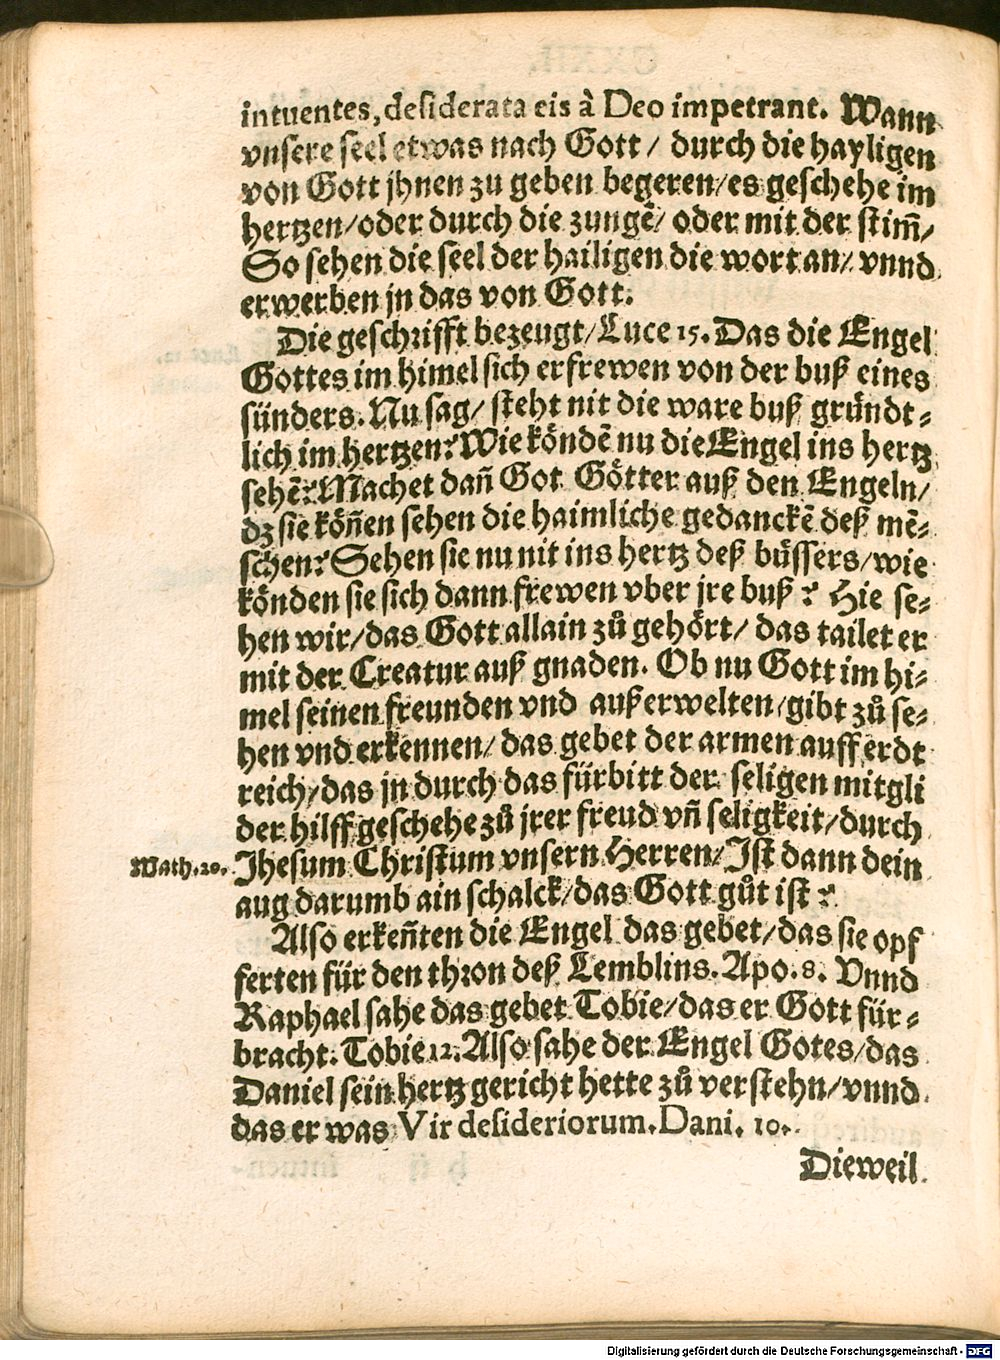 intuentes, desiderata eis à Deo impetrant. Wann
vnsere seel etwas nach Gott / durch die hayligen
von Gott jhnen zu geben begeren/es geschehe im
hertzen/oder durch die zungē/ oder mit der stim̃/
So sehen die seel der hailigen die wort an/ vnnd
erwerben jn das von Gott.
Die geschrifft bezeugt/Luce 15. Das die Engel
Gottes im himel sich erfrewen von der buß eines
sünders. Nu sag/ steht nit die ware buß gründt⸗
lich im hertzen? Wie köndē nu die Engel ins hertz
sehē? Machet dañ Got Götter auß den Engeln/
dz sie köñen sehen die haimliche gedanckē deß mē⸗
schen? Sehen sie nu nit ins hertz deß büssers/wie
könden sie sich dann frewen vber jre buß? Hie se⸗
hen wir/das Gott allain zů gehört/ das tailet er
mit der Creatur auß gnaden. Ob nu Gott im hi⸗
mel seinen freunden vnd außerwelten/gibt zů se⸗
hen vnd erkennen/ das gebet der armen auff erdt
reich/das jn durch das fürbitt der seligen mitgli
der hilff geschehe zů jrer freud vñ seligkeit/durch
Math.20. Jhesum Christum vnsern Herren/Ist dann dein
aug darumb ain schalck/das Gott gůt ist?
Also erkeñten die Engel das gebet/das sie opf
ferten für den thron deß Lemblins. Apo.8. Vnnd
Raphael sahe das gebet Tobie/das er Gott für⸗
bracht. Tobie 12. Also sahe der Engel Gotes/das
Daniel sein hertz gericht hette zů verstehn/vnnd
das er was Vir desideriorum. Dani. 10.
Dieweil
Digitalisierung gefördert durch die Deutsche Forschungsgemeinschaft - DFG